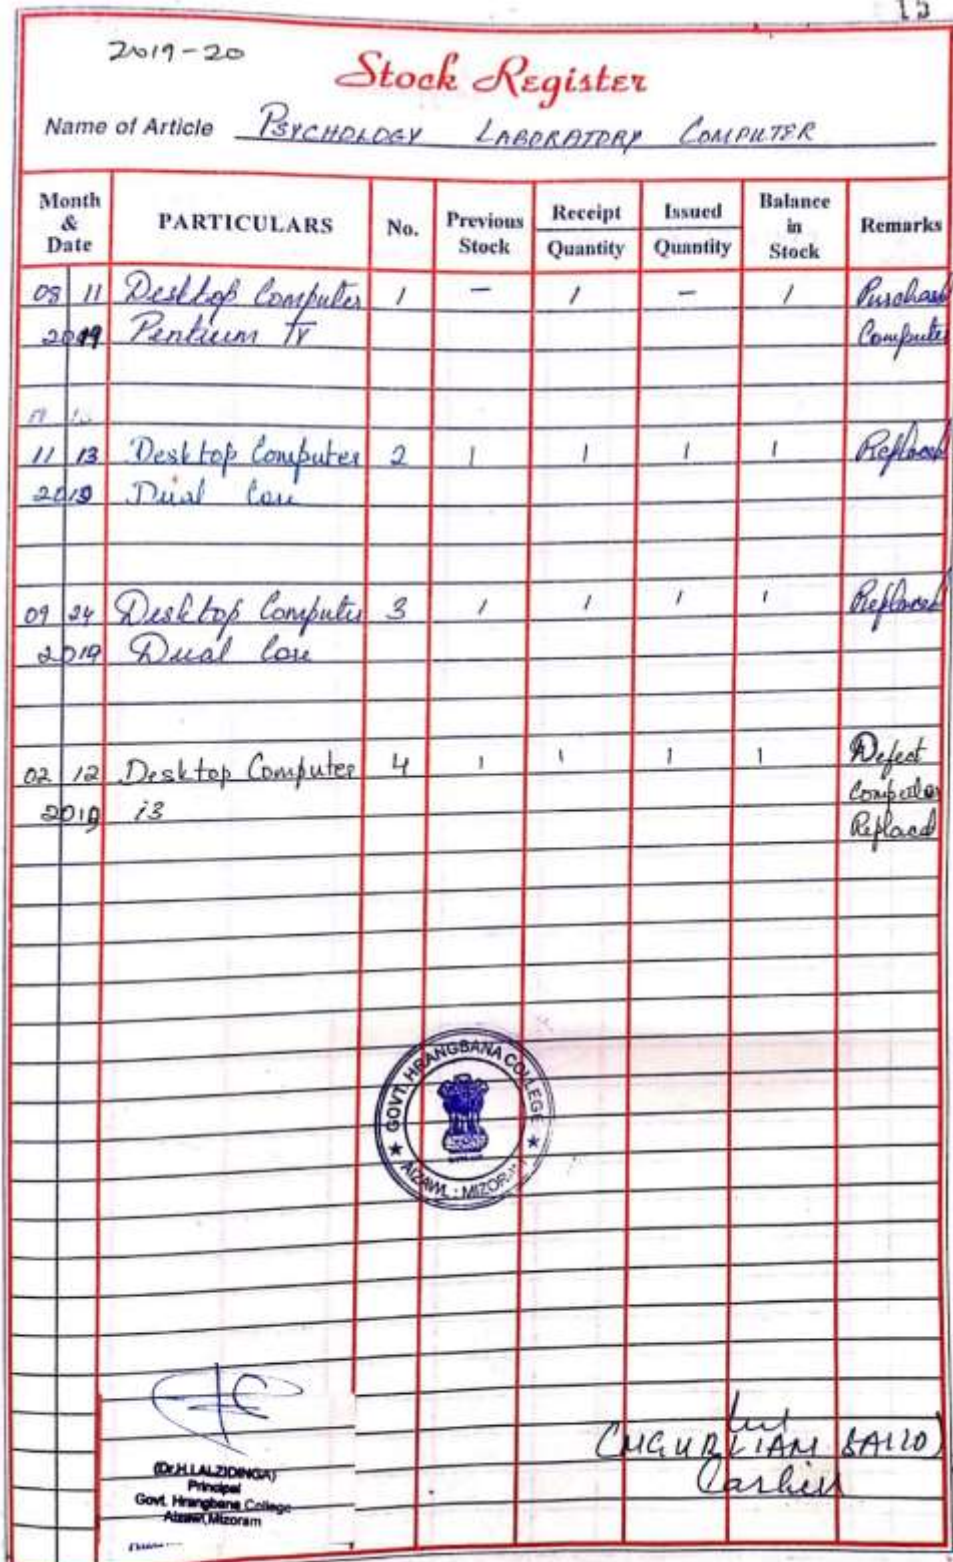 2019-20
Stock Register
Name of Article PSYCHOLOGY LABORATORY COMPUTER
Month & Date PARTICULARS No. Previous Stock Receipt Quantity Issued Quantity Balance in Stock Remarks
08 11 Desktop Computer 1 - 1 - 1 Purchase
2019 Pentium IV Computer
11 13 Desktop Computer 2 1 1 1 1 Replaced
2019 Dual Core
09 24 Desktop Computer 3 1 1 1 1 Replaced
2019 Dual Core
02 12 Desktop Computer 4 1 1 1 1 Defect
2019 i3 Computer
Replacd
GOVT. HRANGBANA COLLEGE
AIZAWL : MIZORAM
(Dr.H.LALZIDINGA)
Principal
Govt. Hrangbana College
Aizawl, Mizoram
(NGURLIAM SAILO)
Cashier